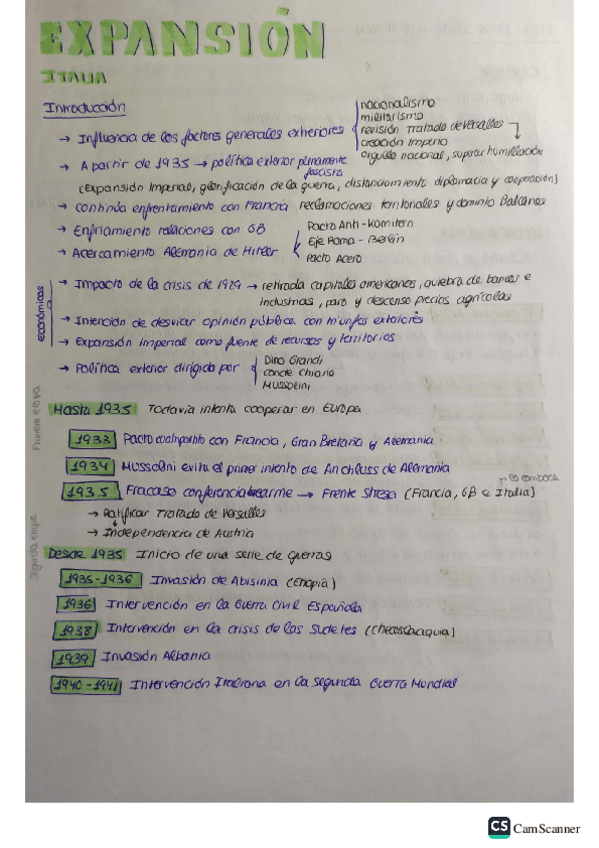 EXPANSIÓN
ITALIA
Introducción
nacionalismo
militarismo
→ Influencia de los factores generales exteriores
revisión Tratado de Versalles
creación Imperio
orgullo nacional, superar humillación
→ A partir de 1935 → política exterior plenamente fascista
(Expansión Imperial, glorificación de la guerra, distanciamiento diplomacia y cooperación)
→ Continúa enfrentamiento con Francia reclamaciones territoriales y dominio Balcanes
→ Enfriamiento relaciones con GB
Pacto Anti-Komitern
Eje Roma - Berlín
→ Acercamiento Alemania de Hitler
Pacto Acero
económicas
→ Impacto de la crisis de 1929 → retirada capitales americanos, quiebra de bancos e
industrias, paro y descenso precios agrícolas
→ Intención de desviar opinión pública con triunfos exteriores
→ Expansión Imperial como fuente de recursos y territorios
→ Política exterior dirigida por
Dino Grandi
Conde Chiano
Mussolini
Primera etapa
Hasta 1935 Todavía intenta cooperar en Europa
1933 Pacto cuatripartito con Francia, Gran Bretaña y Alemania
1934 Mussolini evita el primer intento de Anchluss de Alemania
1935 Fracaso conferencia rearme → Frente Stresa (Francia, GB e Italia)
→ Ratificar Tratado de Versalles
→ Independencia de Austria
Segunda etapa
Desde 1935 Inicio de una serie de guerras
1935-1936 Invasión de Abisinia (Etiopía)
1936 Intervención en la Guerra Civil Española
1938 Intervención en la crisis de los Sudetes (Checoslovaquia)
1939 Invasión Albania
1940-1941 Intervención Italiana en la Segunda Guerra Mundial
CS CamScanner